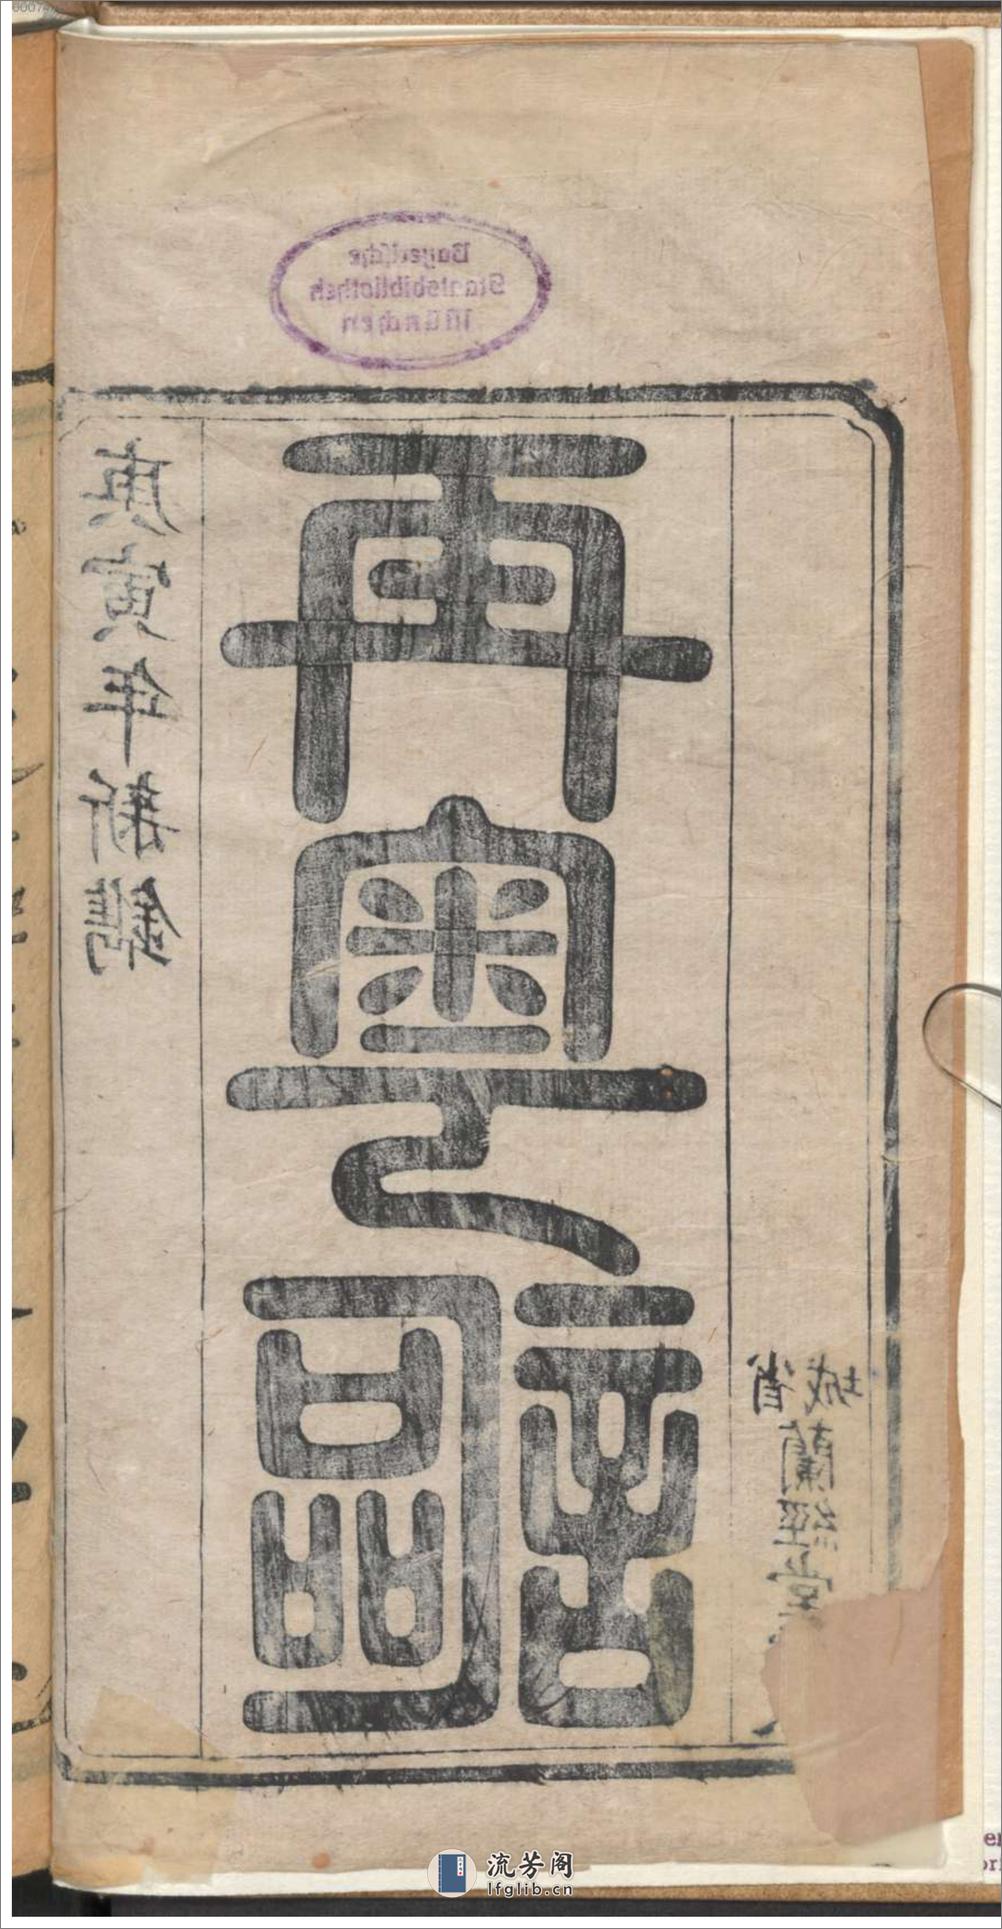 Bayerische
Staatsbibliothek
München
庚寅年新鐫
再粵謳
省城
蘭經堂
流芳阁
lfglib.cn